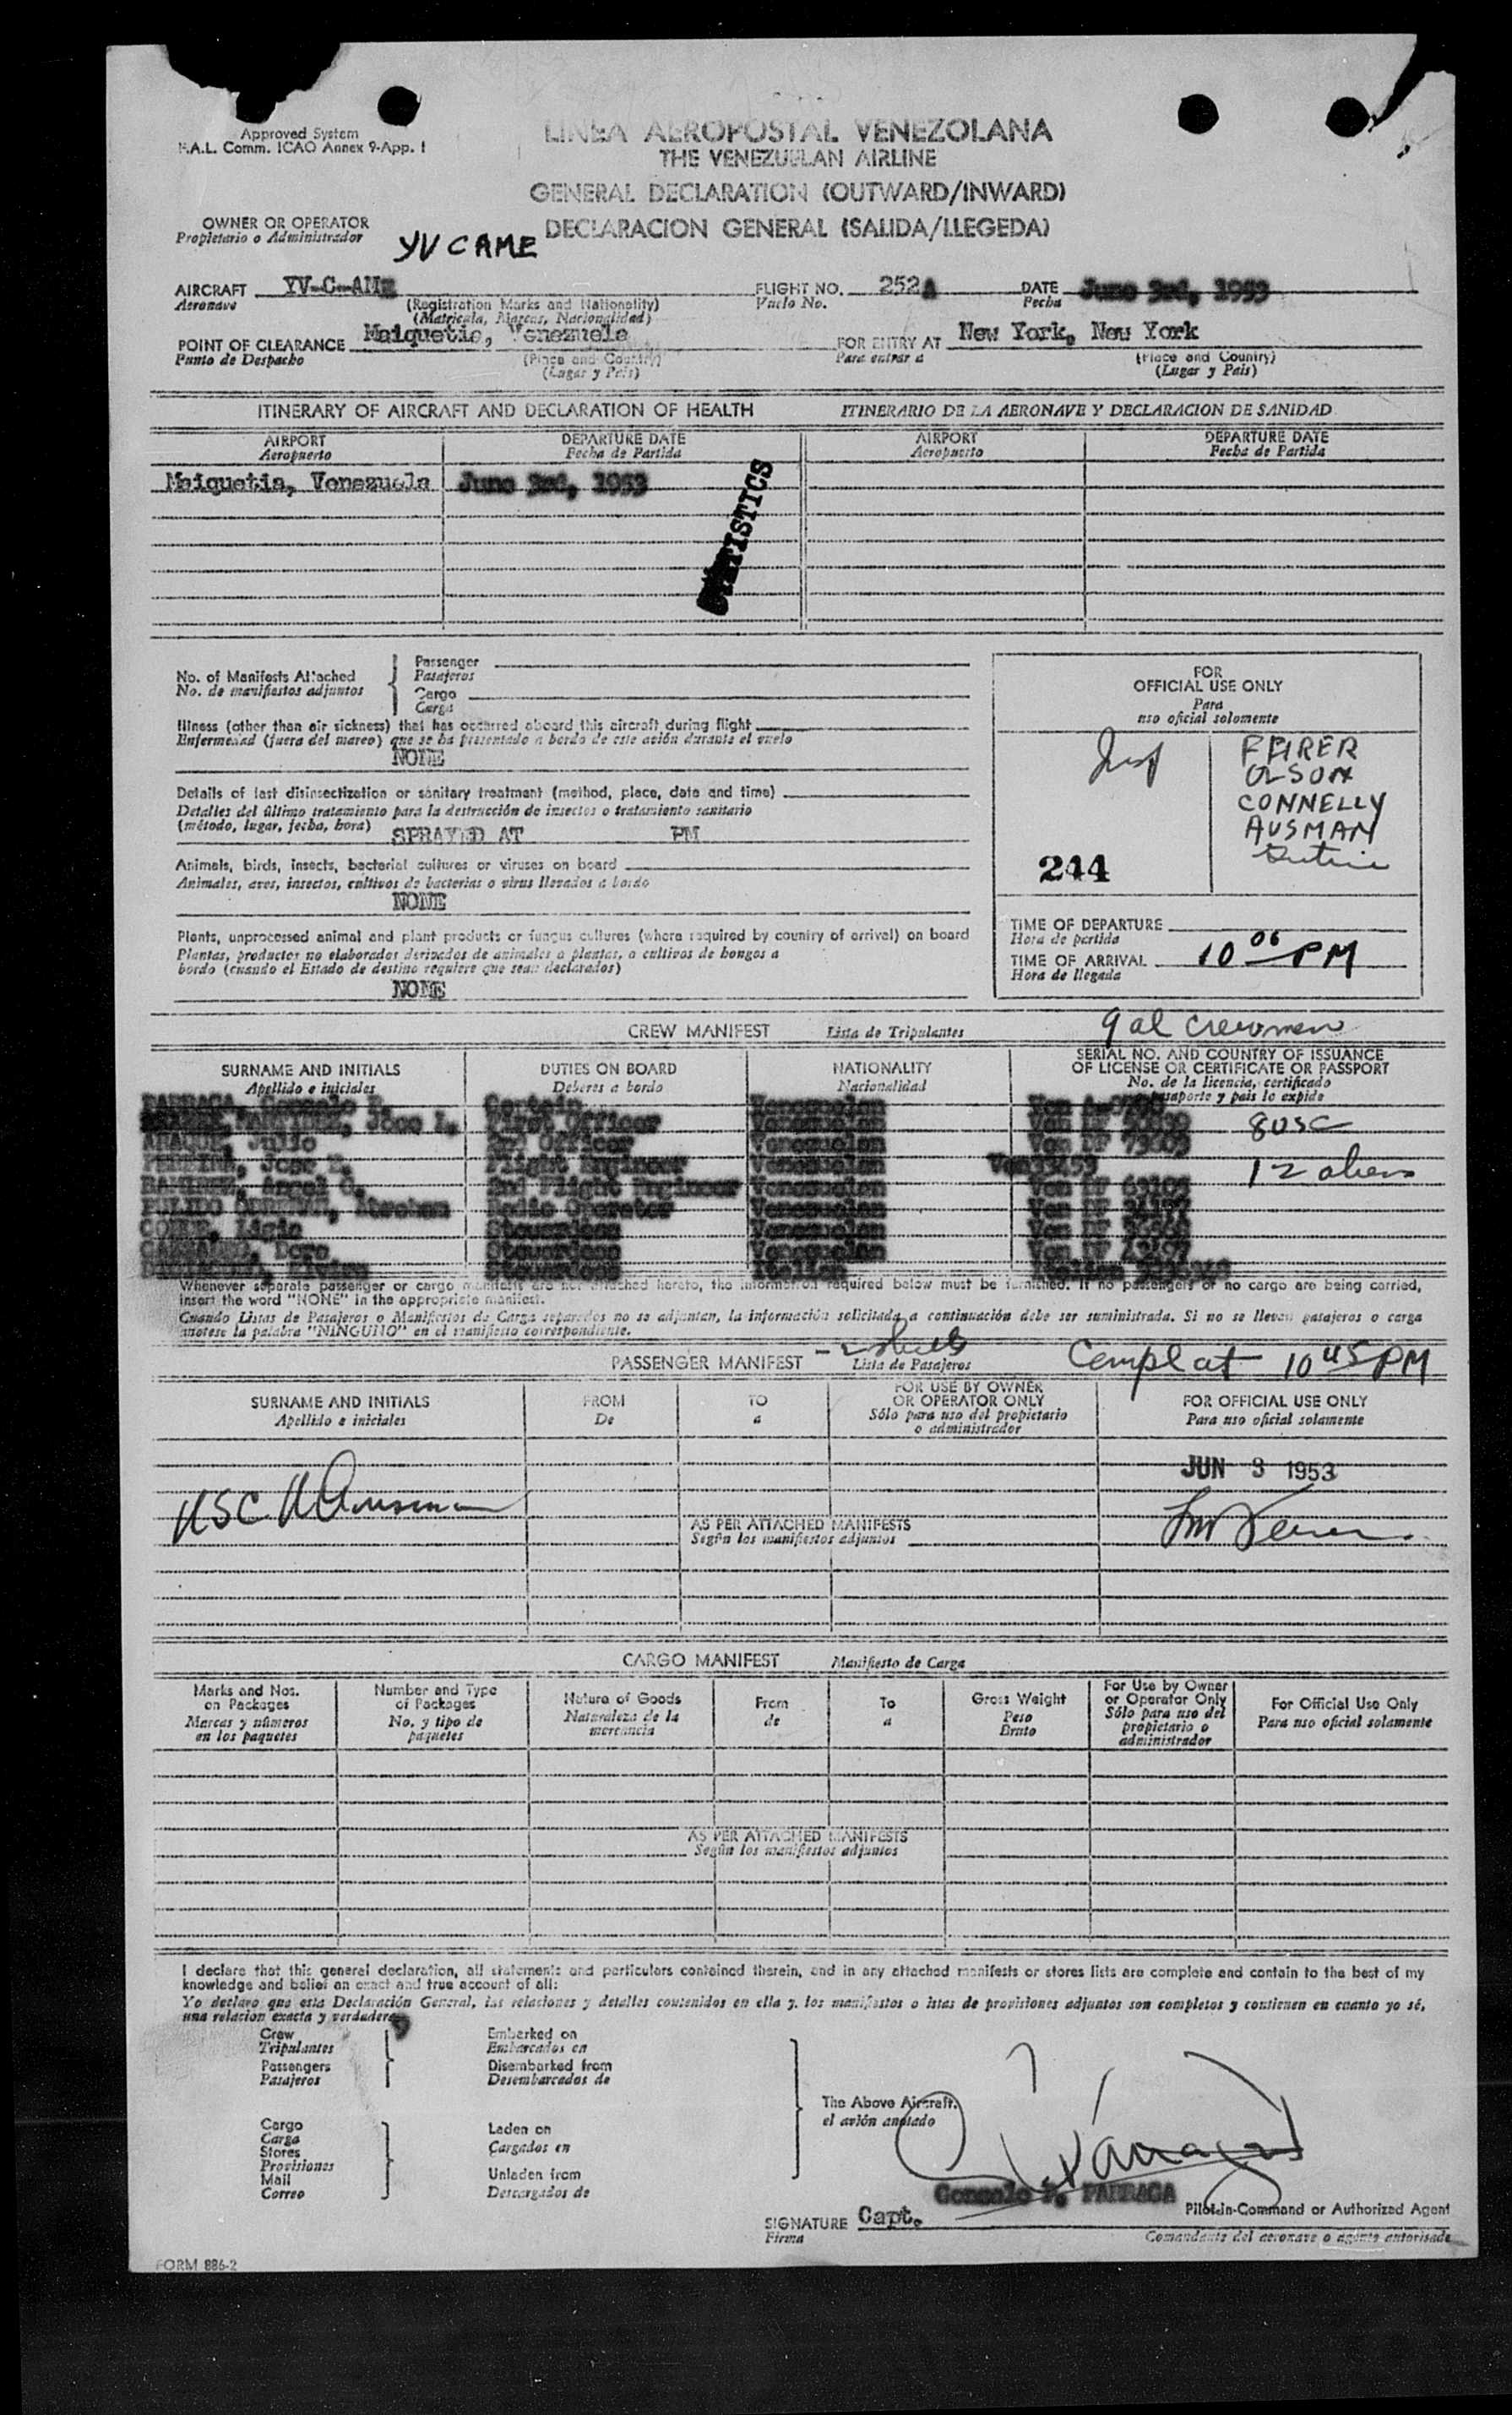 Approved System
F.A.L. Comm. ICAO Annex 9-App. I
LINEA AEROPOSTAL VENEZOLANA
THE VENEZUELAN AIRLINE
GENERAL DECLARATION (OUTWARD/INWARD)
DECLARACION GENERAL (SALIDA/LLEGEDA)
OWNER OR OPERATOR
Propietario o Administrador
YV CAME
AIRCRAFT YV-C-AME FLIGHT NO. 252A DATE June 3rd, 1953
Aeronave (Registration Marks and Nationality) Vuelo No. Fecha
(Matricula, Marcas, Nacionalidad)
POINT OF CLEARANCE Maiquetia, Venezuela FOR ENTRY AT New York, New York
Punto de Despacho (Place and Country) Para entrar a (Place and Country)
(Lugar y Pais) (Lugar y Pais)
ITINERARY OF AIRCRAFT AND DECLARATION OF HEALTH ITINERARIO DE LA AERONAVE Y DECLARACION DE SANIDAD
AIRPORT DEPARTURE DATE AIRPORT DEPARTURE DATE
Aeropuerto Fecha de Partida Aeropuerto Fecha de Partida
Maiquetia, Venezuela June 3rd, 1953
STATISTICS
No. of Manifests Attached
No. de manifiestos adjuntos
Passenger
Pasajeros
Cargo
Carga
Illness (other than air sickness) that has occurred aboard this aircraft during flight
Enfermedad (fuera del mareo) que se ha presentado a bordo de este avión durante el vuelo
NONE
Details of last disinsectization or sanitary treatment (method, place, date and time)
Detalles del último tratamiento para la destrucción de insectos o tratamiento sanitario
(método, lugar, fecha, hora) SPRAYED AT PM
Animals, birds, insects, bacterial cultures or viruses on board
Animales, aves, insectos, cultivos de bacterias o virus llevados a bordo
NONE
Plants, unprocessed animal and plant products or fungus cultures (where required by country of arrival) on board
Plantas, productos no elaborados derivados de animales o plantas, o cultivos de hongos a
bordo (cuando el Estado de destino requiere que sean declarados)
NONE
FOR
OFFICIAL USE ONLY
Para
uso oficial solomente
FEIRER
OLSON
CONNELLY
AUSMAN
244
TIME OF DEPARTURE
Hora de partida
TIME OF ARRIVAL 10 06 PM
Hora de llegada
CREW MANIFEST Lista de Tripulantes 9 al crewmen
SURNAME AND INITIALS DUTIES ON BOARD NATIONALITY SERIAL NO. AND COUNTRY OF ISSUANCE
OF LICENSE OR CERTIFICATE OR PASSPORT
Apellido e iniciales Deberes a bordo Nacionalidad No. de la licencia, certificado
pasaporte y pais lo expide
PARRAGA, Gonzalo P. Captain Venezuelan
Jose L. First Officer Venezuelan 8 USC
ARAQUE, Julio 2nd Officer Venezuelan Ven DF 73603
PEREIRA, Jose Flight Engineer Venezuelan Ven 33453 12 aliens
RAMIREZ, Angel 2nd Flight Engineer Venezuelan
PULIDO Radio Operator Venezuelan
Ligia Stewardess Venezuelan
Dora Stewardess Venezuelan
Stewardess Italian
Whenever separate passenger or cargo manifests are not attached hereto, the information required below must be furnished. If no passengers or no cargo are being carried,
insert the word "NONE" in the appropriate manifest.
Cuando Listas de Pasajeros o Manifiestos de Carga separados no se adjuntan, la información solicitada a continuación debe ser suministrada. Si no se llevan pasajeros o carga
anotese la palabra "NINGUNO" en el manifiesto correspondiente.
PASSENGER MANIFEST - 2 sheets Lista de Pasajeros Compl at 10 45 PM
SURNAME AND INITIALS FROM TO FOR USE BY OWNER
OR OPERATOR ONLY FOR OFFICIAL USE ONLY
Apellido e iniciales De a Sólo para uso del propietario
o administrador Para uso oficial solamente
JUN 3 1953
AS PER ATTACHED MANIFESTS
Según los manifiestos adjuntos
CARGO MANIFEST Manifiesto de Carga
Marks and Nos.
on Packages
Marcas y números
en los paquetes
Number and Type
of Packages
No. y tipo de
paquetes
Nature of Goods
Naturaleza de la
mercancia
From
de
To
a
Gross Weight
Peso
Bruto
For Use by Owner
or Operator Only
Sólo para uso del
propietario o
administrador
For Official Use Only
Para uso oficial solamente
AS PER ATTACHED MANIFESTS
Según los manifiestos adjuntos
I declare that this general declaration, all statements and particulars contained therein, and in any attached manifests or stores lists are complete and contain to the best of my
knowledge and belief an exact and true account of all:
Yo declaro que esta Declaración General, las relaciones y detalles contenidos en ella y. los manifiestos o istas de provisiones adjuntos son completos y contienen en cuanto yo sé,
una relacion exacta y verdadera
Crew
Tripulantes
Passengers
Pasajeros
Embarked on
Embarcados en
Disembarked from
Desembarcados de
Cargo
Carga
Stores
Provisiones
Mail
Correo
Laden on
Cargados en
Unladen from
Descargados de
The Above Aircraft.
el avión anotado
Gonzalo P. PARRAGA
SIGNATURE Capt. Pilot-in-Command or Authorized Agent
Firma Comandante del aeronave o agente autorisade
FORM 886-2